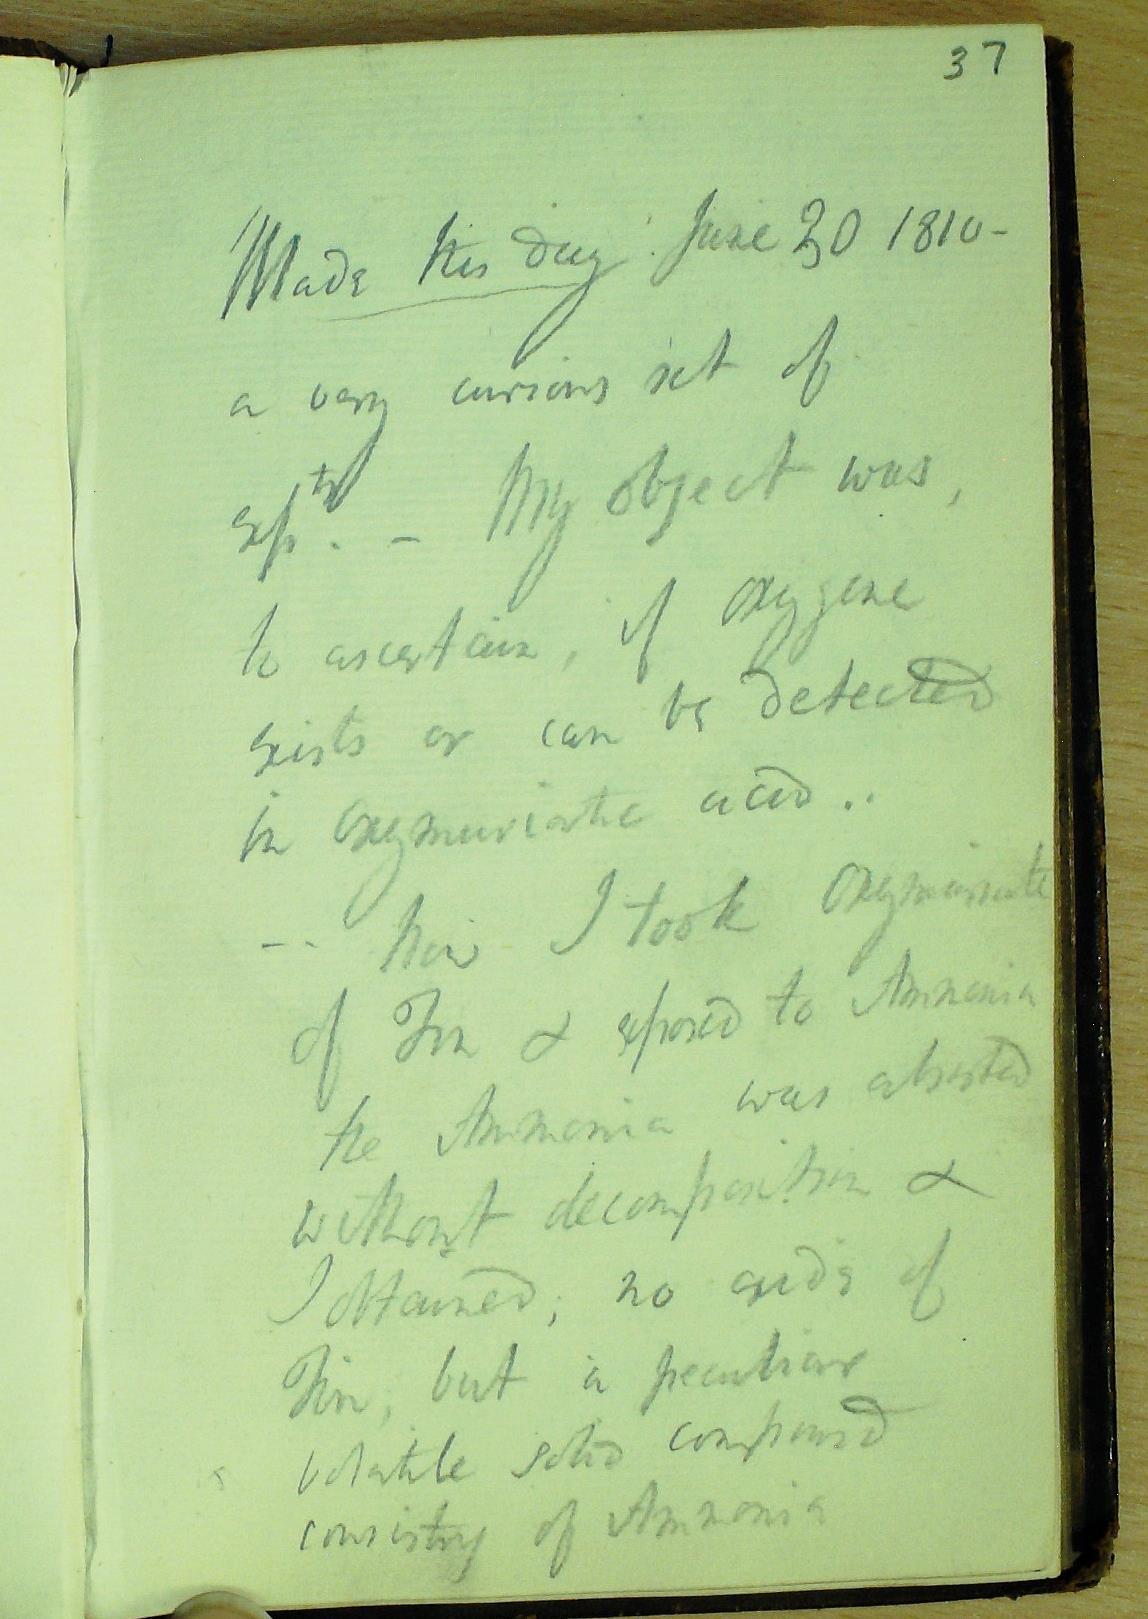 37
Made this day. June 30 1810-
a very curious set of
Exp.ts - My object was,
to ascertain, if oxygene
exists or can be detected
in oxymuriatic acid..
-- I took Oxymuriate
of Tin & exposed to Ammonia
the Ammonia was absorbed
without decomposition &
I obtained; no oxide of
Tin, but a peculiar
volatile solid compound
consistng of Ammonia